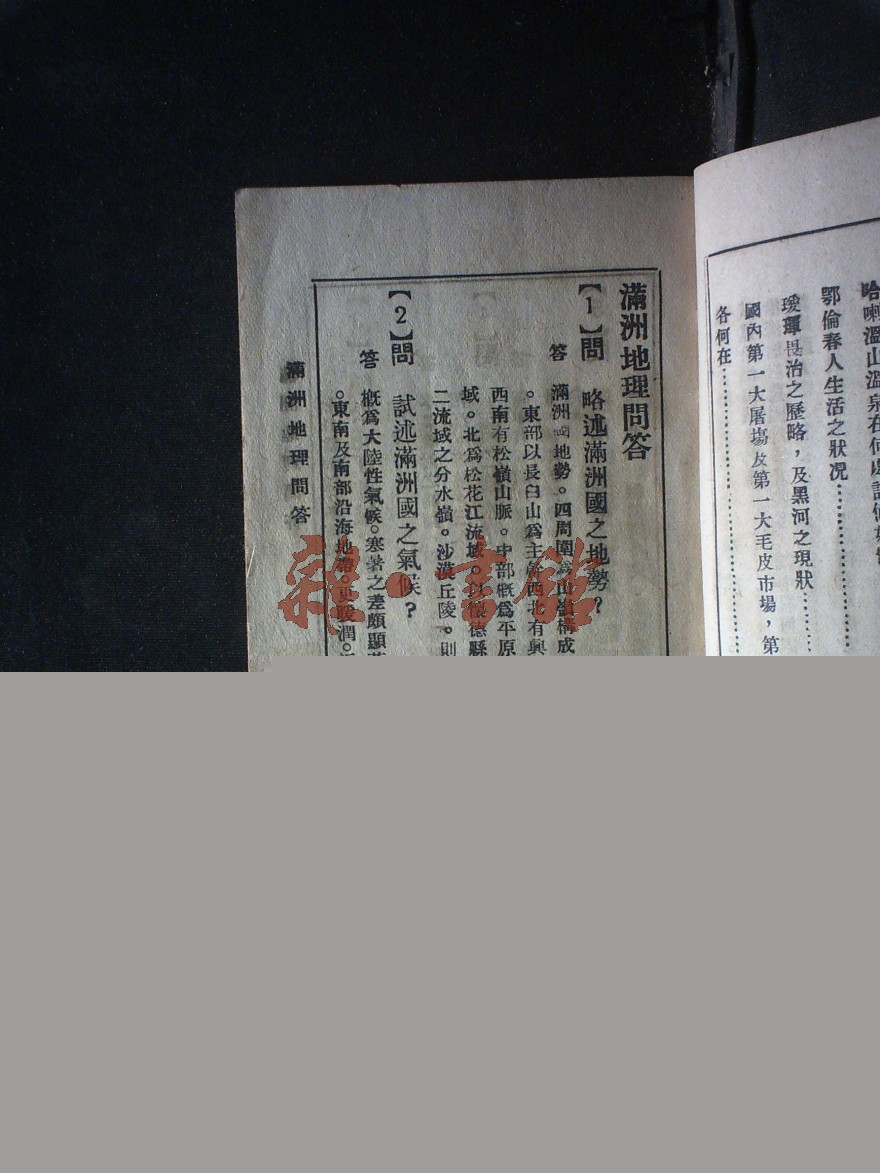 哈喇溫山溫泉在何處
鄂倫春人生活之狀況………………
璦琿長治之歷略，及黑河之現狀………
國內第一大屠塲及第一大毛皮市場，第
各何在………………
滿洲地理問答
【1】問 略述滿洲國之地勢？
答 滿洲國地勢。四周圍爲山嶺構成
。東部以長白山爲主幹西北有興
西南有松嶺山脈。中部概爲平原
域。北爲松花江流域。以懷德縣
二流域之分水嶺。沙漠丘陵。則
【2】問 試述滿洲國之氣候？
答 概爲大陸性氣候。寒暑之差頗顯
。東南及南部沿海地帶。更暖潤。
滿洲地理問答
雜·書館